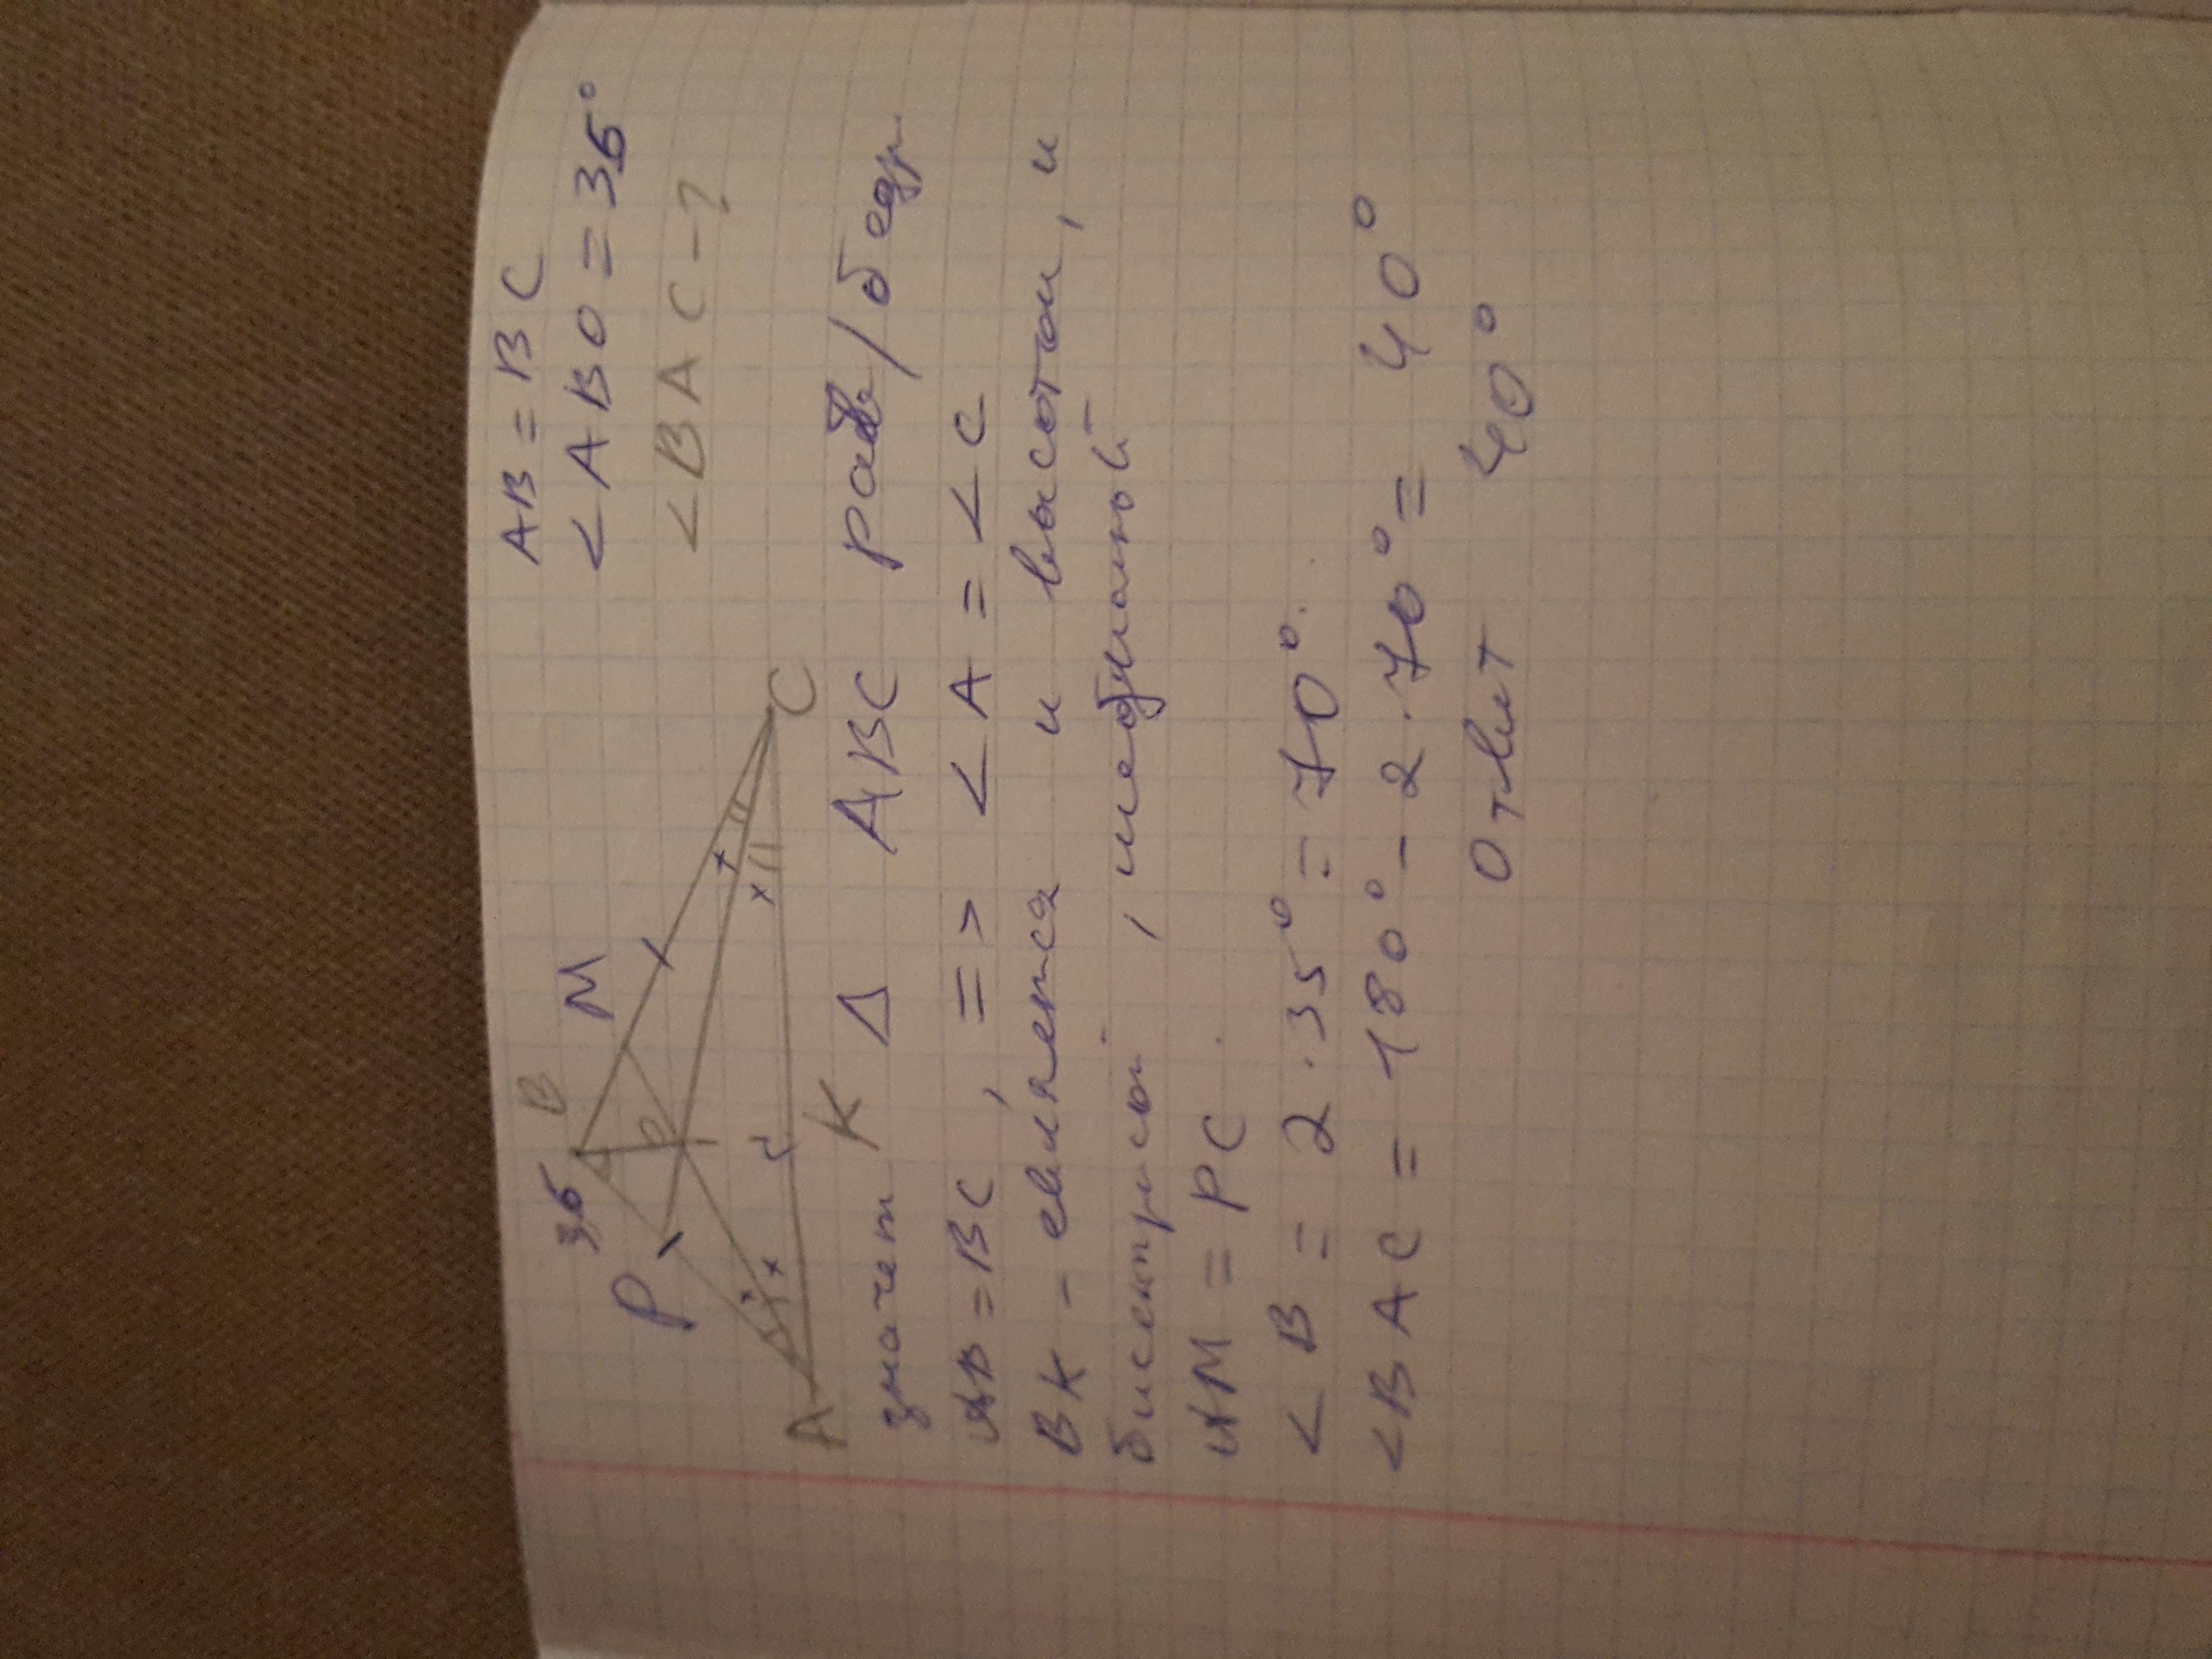 AB = BC
∠ABO = 35°
∠BAC - ?
35
B
M
P
O
A
K
C
значит Δ ABC равн/бедр.
AB = BC, => ∠A = ∠C
BK - евляется и высотои, и
бисектрисои, медианой
AM = PC
∠B = 2 · 35° = 70°.
∠BAC = 180° - 2 · 70° = 40°
Отвит 40°